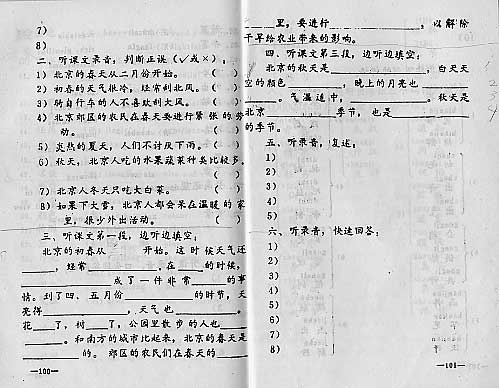 7)
8)
二、听课文录音，判断正误（√或×）：
1) 北京的春天从二月份开始。 （ ）
2) 初春的天气很冷，经常刮北风。 （ ）
3) 骑自行车的人不喜欢刮大风。 （ ）
4) 北京郊区的农民在春天要进行紧张的劳
动。 （ ）
5) 炎热的夏天，人们不讨厌下雨。（ ）
6) 秋天，北京人吃的水果蔬菜种类比较多。
（ ）
7) 北京人冬天只吃大白菜。 （ ）
8) 如果下大雪，北京人都会呆在温暖的家
里，很少外出活动。 （ ）
三、听课文第一段，边听边填空：
北京的初春从____开始。这时候天气还
____，经常____，在____的时候，
____成了一件非常____的事
情。到了四、五月份____的时节，天
亮得____，天气也____。
花____了，树____了，公园里散步的人也____
____。和南方的城市比起来，北京的春天是
____的。郊区的农民们在春天的____
—100—
____里，要进行____，以解除
干旱给农业带来的影响。
四、听课文第三段，边听边填空：
北京的秋天是____，白天天
空的颜色____，晚上的月亮也____
____。气温适中，____。秋天是
北京____季节，也是____
的季节。
五、听录音，复述：
1)
2)
3)
4)
5)
六、听录音，快速回答：
1)
2)
3)
4)
5)
6)
7)
8)
—101—